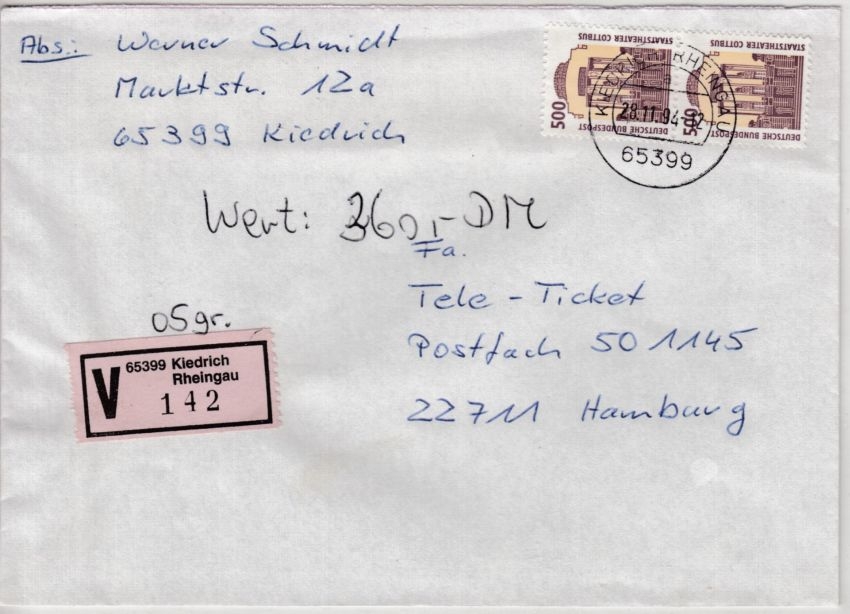 Abs.: Werner Schmidt
Marktstr. 12a
65399 Kiedrich
STAATSTHEATER COTTBUS
500
DEUTSCHE BUNDESPOST
STAATSTHEATER COTTBUS
500
DEUTSCHE BUNDESPOST
KIEDRICH, RHEINGAU
a
28.11.94-12
65399
Wert: 360,- DM
Fa.
Tele - Ticket
Postfach 501145
22711 Hamburg
05gr.
V 65399 Kiedrich
Rheingau
142